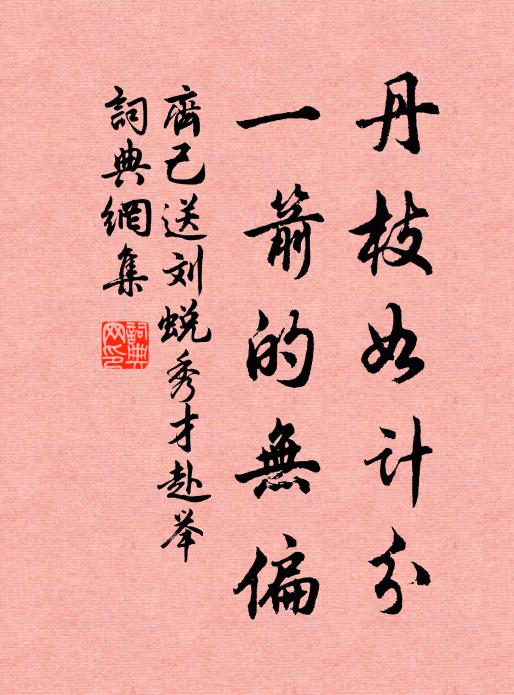 丹枝如计分
一箭的無偏
齊己送刘蜕秀才赴举
詞典網集
詞典網印